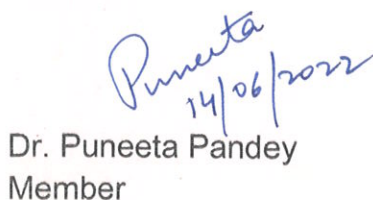 Puneeta
14/06/2022
Dr. Puneeta Pandey
Member